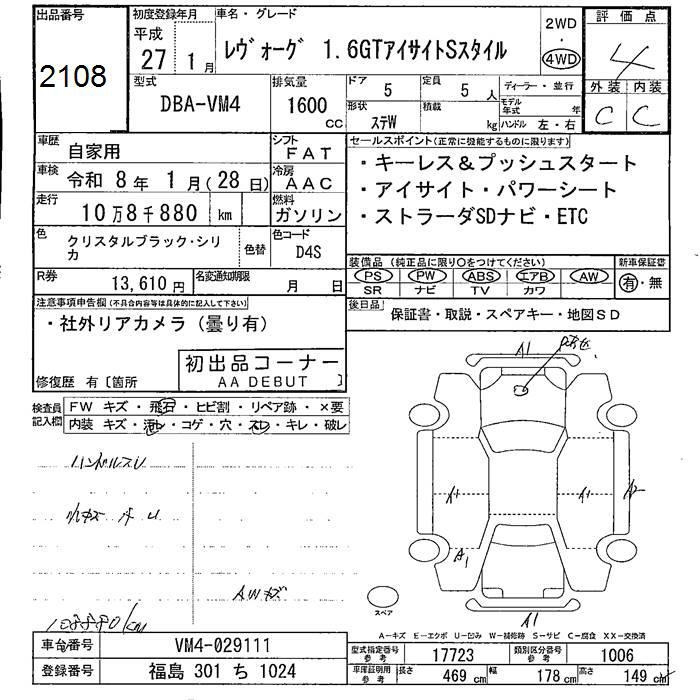 出品番号
2108
初度登録年月
平成
27 1月
車名・グレード
レヴォーグ 1.6GTアイサイトSスタイル
2WD
・
4WD
評価点
4
外装 内装
C C
型式
DBA-VM4
排気量
1600
CC
ドア
5
定員
5 人
形状
ステW
積載
kg
ディーラー・並行
モデル年式 年
ハンドル 左・右
車歴
自家用
シフト
FAT
車検
令和 8年 1月(28日)
冷房
AAC
走行
10万8千880 km
燃料
ガソリン
色
クリスタルブラック・シリカ
色替
色コード
D4S
R券
13,610円
名変通知期限
月 日
セールスポイント(正常に機能するものに限ります)
・キーレス&プッシュスタート
・アイサイト・パワーシート
・ストラーダSDナビ・ETC
装備品(純正品に限り〇をつけてください)
PS PW ABS エアB AW
SR ナビ TV カワ
新車保証書
有・無
後日品
保証書・取説・スペアキー・地図SD
注意事項申告欄(不具合内容等は具体的に記入して下さい)
・社外リアカメラ(曇り有)
初出品コーナー
AA DEBUT
修復歴 有〔箇所 〕
検査員記入欄
FW キズ・飛石・ヒビ割・リペア跡・×要
内装 キズ・汚レ・コゲ・穴・スレ・キレ・破レ
ハンドルスレ
AWキズ
108880km
A1
A1
A1
A2
A1
A1
スペア
A-キズ E-エクボ U-凹み W-補修跡 S-サビ C-腐食 XX-交換済
車台番号
VM4-029111
登録番号
福島 301 ち 1024
型式指定番号
参考
17723
類別区分番号
参考
1006
車庫証明用
参考
長さ
469 cm
幅
178 cm
高さ
149 cm